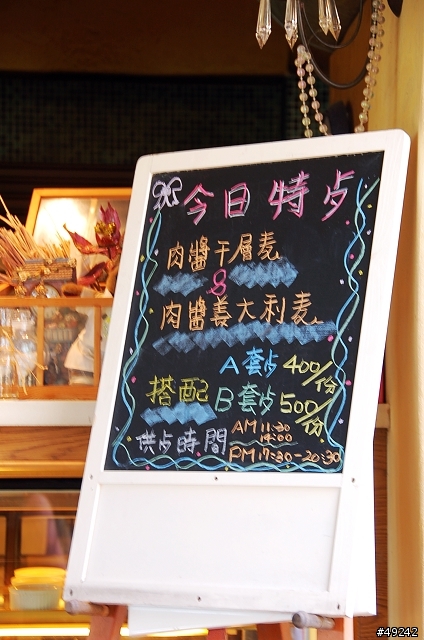 今日特占
肉醬千層麦
&
肉醬義大利麦
A套占 400/份
搭配 B套占 500/份
供占時間 AM 11:30 14:00
PM 17:30-20:30
#49242